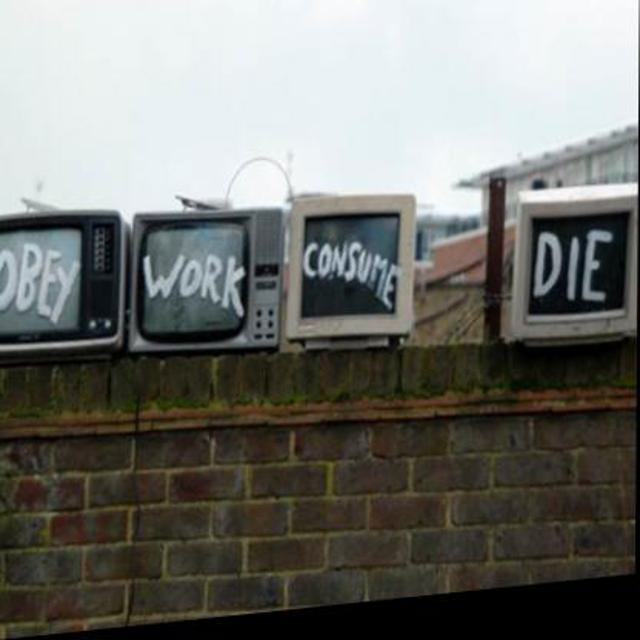 OBEY
WORK
CONSUME
DIE